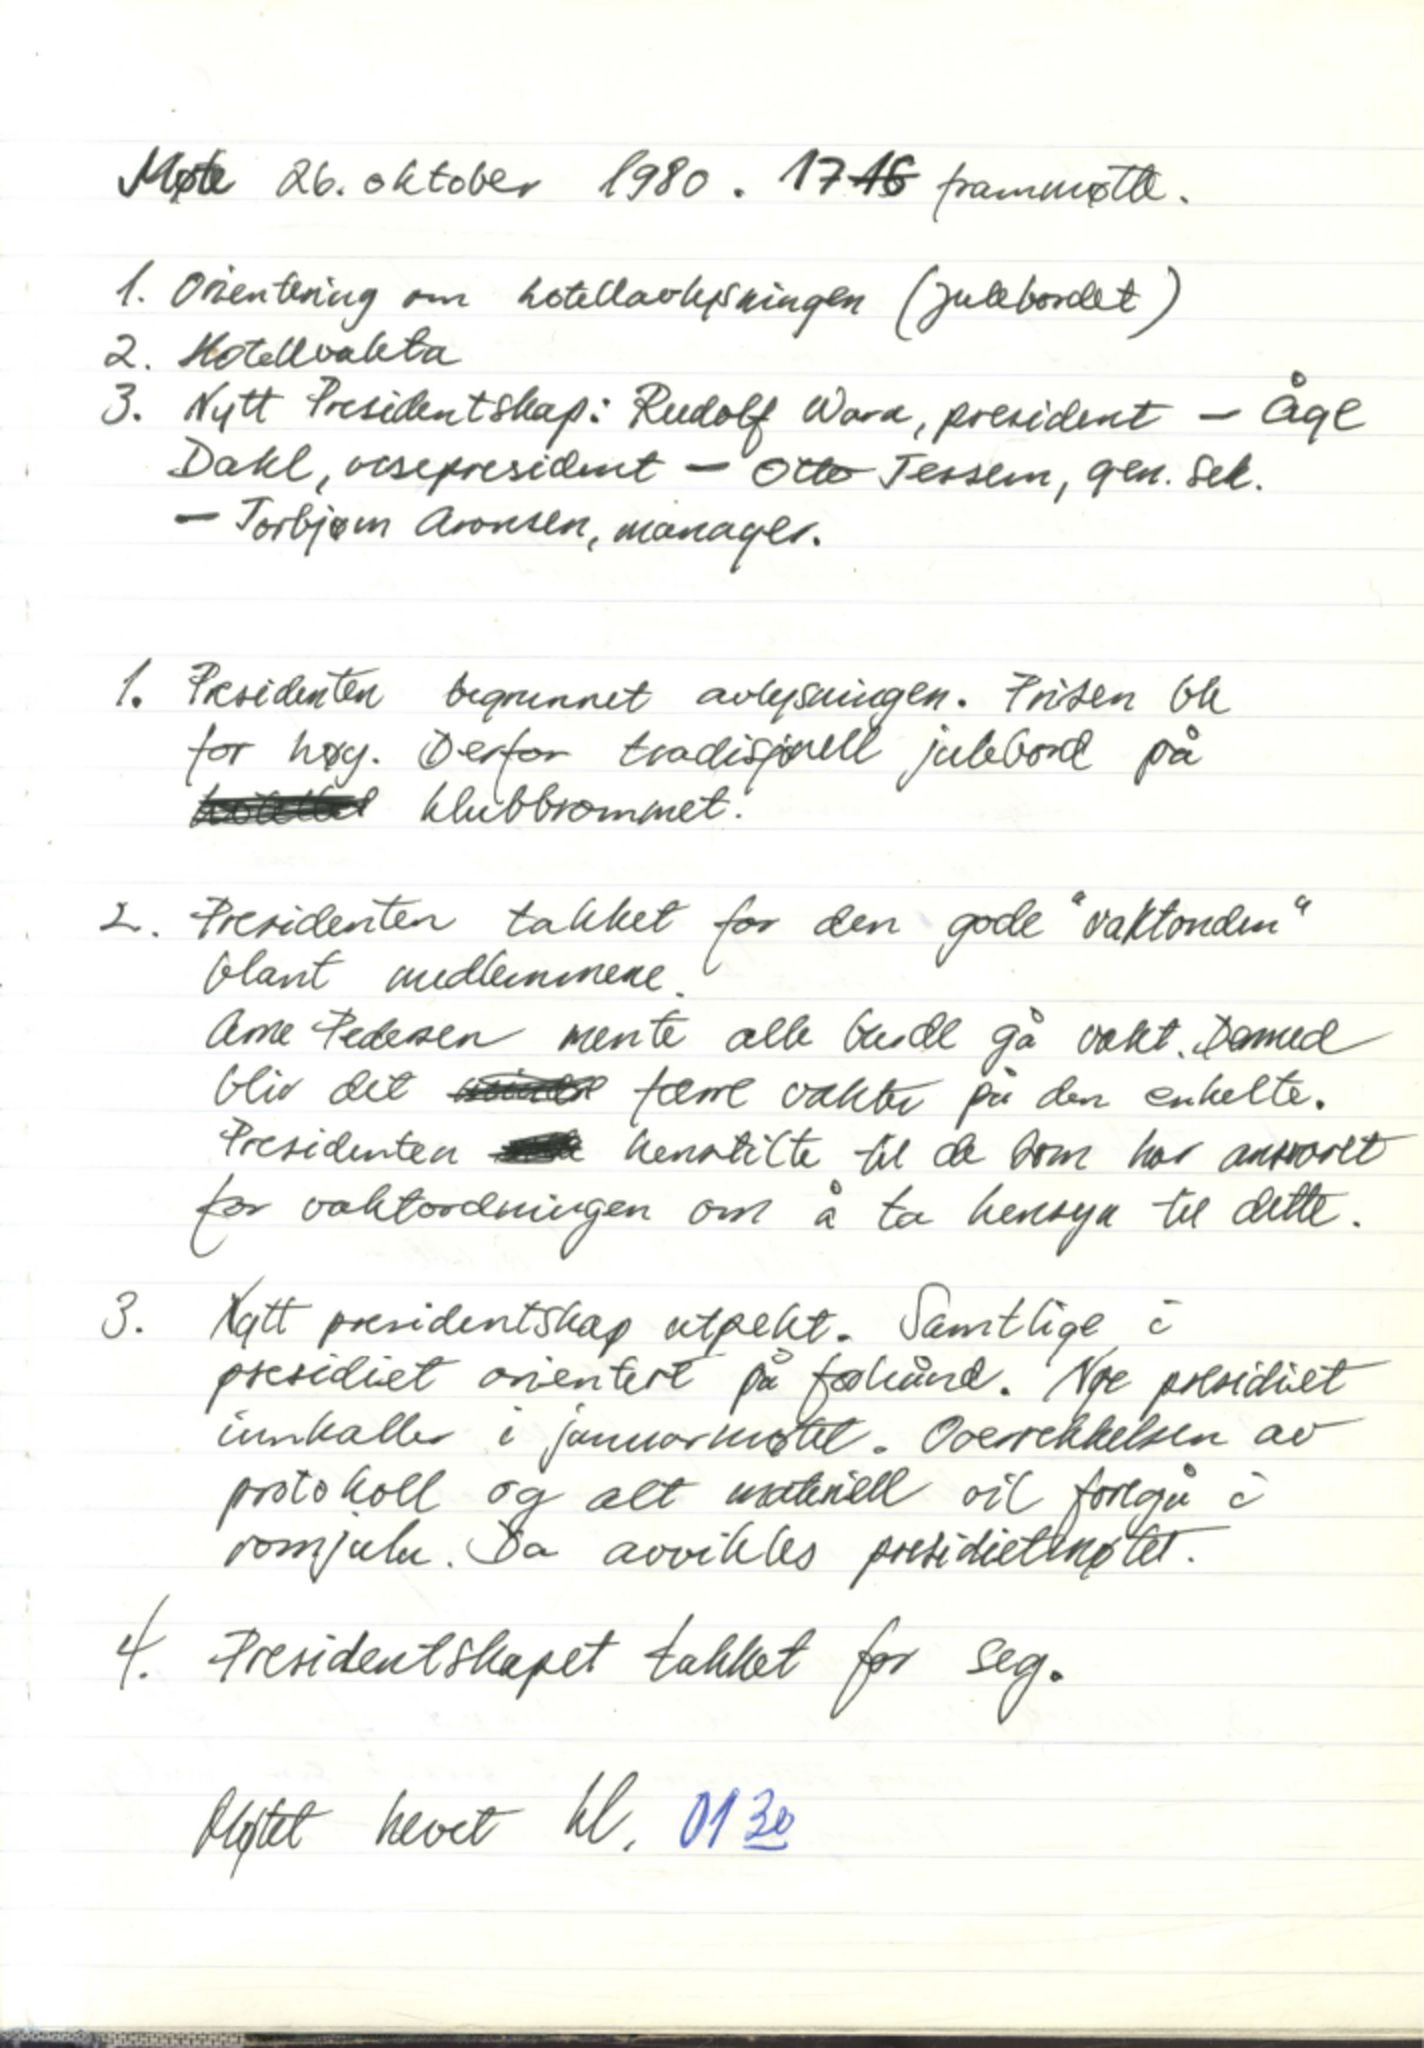 Møte 26. oktober 1980. 17 16 frammøtte.
1. Orientering om hotellavlysningen (julebordet)
2. Hotellvakta
3. Nytt Presidentskap: Rudolf Wara, president – Åge
Dahl, visepresident – Otto Jessem, gen. sek.
– Torbjørn Aronsen, manager.
1. Presidenten begrunnet avlysningen. Prisen ble
for høy. Derfor tradisjonell julebord på
hotellet klubbrommet.
2. Presidenten takket for den gode "vaktånden"
blant medlemmene.
Arne Pedersen mente alle burde gå vakt. Dermed
blir det færre vakter på den enkelte.
Presidenten henstilte til de som har ansvaret
for vaktordningen om å ta hensyn til dette.
3. Nytt presidentskap utpekt. Samtlige i
presidiet orientert på forhånd. Nye presidiet
innkaller i januarmøtet. Overrekkelsen av
protokoll og alt materiell vil foregå i
romjula. Da avvikles presidietmøtet.
4. Presidentskapet takket for seg.
Møtet hevet kl. 01 30